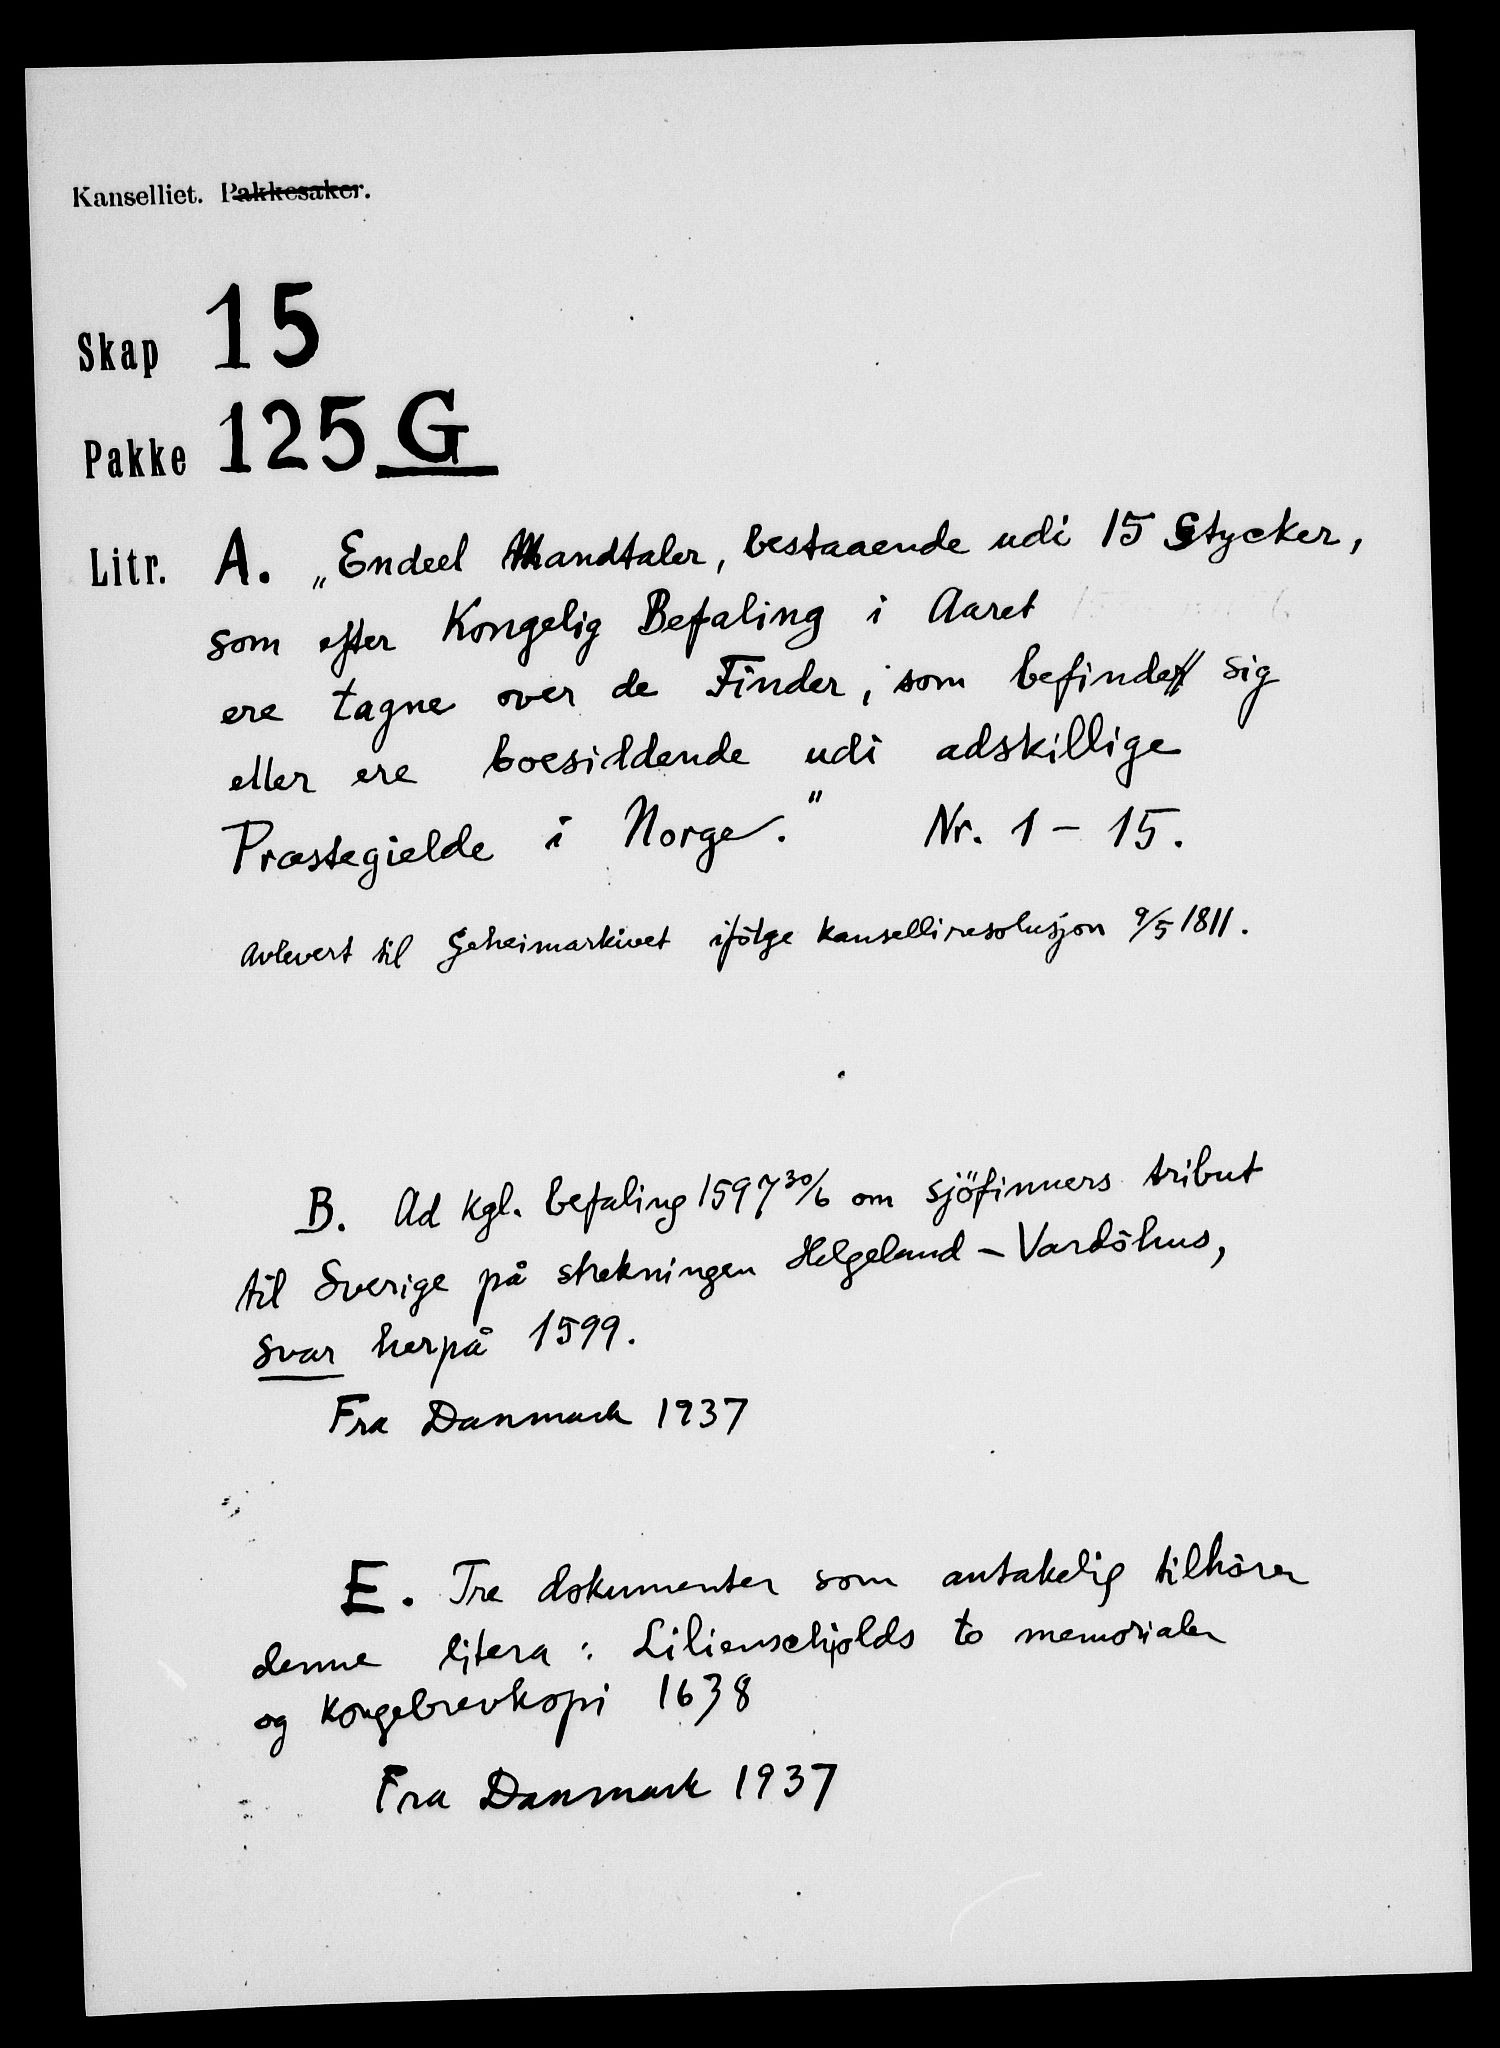 Kanselliet. Pakkesaker.
Skap 15
Pakke 125 G
Litr. A. „Endeel Mandtaler, bestaaende udi 15 Stycker,
som efter Kongelig Befaling i Aaret
ere tagne over de Finder, som befinder sig
eller ere boesiddende udi adskillige
Præstegielde i Norge." Nr. 1 - 15.
Avlevert til Geheimarkivet ifölge kanselliresolusjon 9/5 1811.
B. Ad kgl. befaling 1597 30/6 om sjöfinners tribut
til Sverige på strekningen Helgeland - Vardöhus,
svar herpå 1599.
Fra Danmark 1937
E. Tre dokumenter som antakelig tilhörer
denne litera : Lilienschjolds to memorialer
og Kongebrevkopi 1638
Fra Danmark 1937